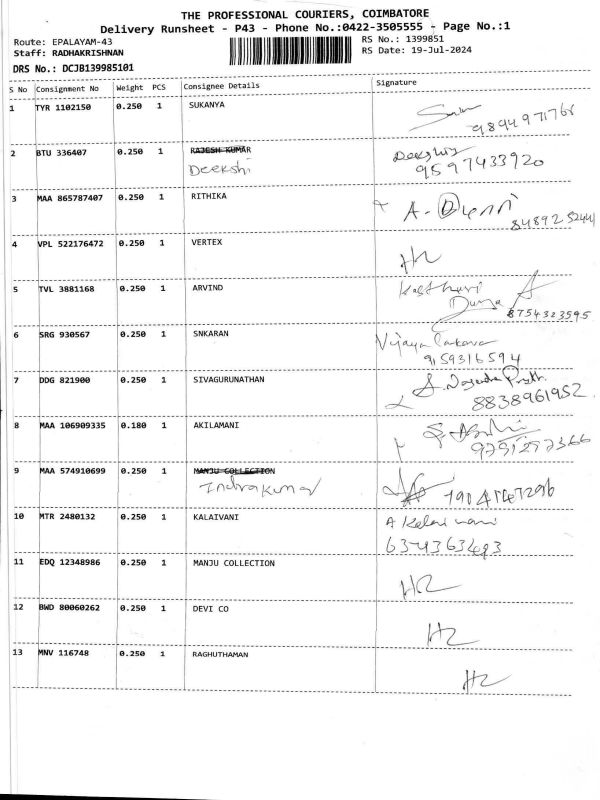 THE PROFESSIONAL COURIERS, COIMBATORE
Delivery Runsheet - P43 - Phone No.:0422-3505555 - Page No.:1
Route: EPALAYAM-43 RS No.: 1399851
Staff: RADHAKRISHNAN RS Date: 19-Jul-2024
DRS No.: DCJB139985101
S No Consignment No Weight PCS Consignee Details Signature
1 TYR 1102150 0.250 1 SUKANYA
9894971768
2 BTU 336407 0.250 1 RAJESH KUMAR
Deekshi
9597433920
3 MAA 865787407 0.250 1 RITHIKA
4 VPL 522176472 0.250 1 VERTEX
5 TVL 3881168 0.250 1 ARVIND
8754323595
6 SRG 930567 0.250 1 SNKARAN
9159316594
7 DDG 821900 0.250 1 SIVAGURUNATHAN
8838961952
8 MAA 106909335 0.180 1 AKILAMANI
9 MAA 574910699 0.250 1 MANJU COLLECTION
Indrakumar
10 MTR 2480132 0.250 1 KALAIVANI
11 EDQ 12348986 0.250 1 MANJU COLLECTION
12 BWD 80060262 0.250 1 DEVI CO
13 MNV 116748 0.250 1 RAGHUTHAMAN